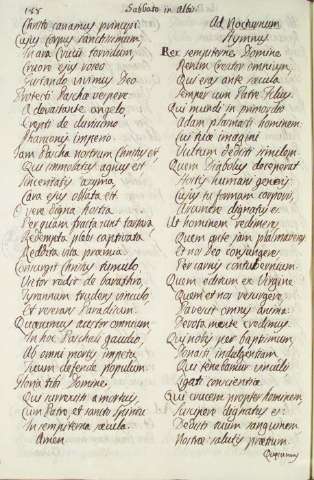 188
Sabbato in albis
Christo canamus principi
Cujus corpus sanctissimum
In ara Crucis torridum,
Cruore ejus roseo
Gustando vivimus Deo
Protecti Paschæ vespere
A devastante angelo,
Erepti de durissimo
Pharaonis imperio.
Jam Pascha nostrum Christus est,
Qui immolatus agnus est
Sinceritatis azyma,
Caro ejus oblata est
O vere digna hostia
Per quam fracta sunt tartara
Redempta plebs captivata
Reddita vitæ præmia.
Consurgit Christus tumulo,
Victor redit de barathro,
Tyrannum trudens vinculo,
Et reserans Paradisum.
Quæsumus auctor omnium,
In hoc Paschali gaudio,
Ab omni mortis impetu,
Tuum defende populum.
Gloria tibi Domine,
Qui surrexisti a mortuis,
Cum Patre, et sancto spiritu
In sempiterna sæcula.
Amen.
Ad Nocturnum
Hymnus
Rex sempiterne Domine
Rerum Creator omnium,
Qui eras ante sæcula
Semper cum Patre filius
Qui mundi in primordio
Adam plasmasti hominem
Cui tuæ imagini
Vultum dedisti similem
Quem Diabolus deceperat
Hostis humani generis
Cujus tu formam corporis,
Assumere dignatus es
Ut hominem redimeres
Quem ante jam plasmaveras
Et nos Deo conjungeres
Per carnis contubernium
Quem editum ex Virgine
Pavescit omnis anima
Devota mente credimus
Qui nobis per baptismum,
Donasti indulgentiam
Qui tenebamur vinculis
Ligati conscientiæ
Qui crucem propter hominem
Suscipere dignatus es
Dedisti tuum sanguinem
Nostræ salutis prætium.
Quæsumus